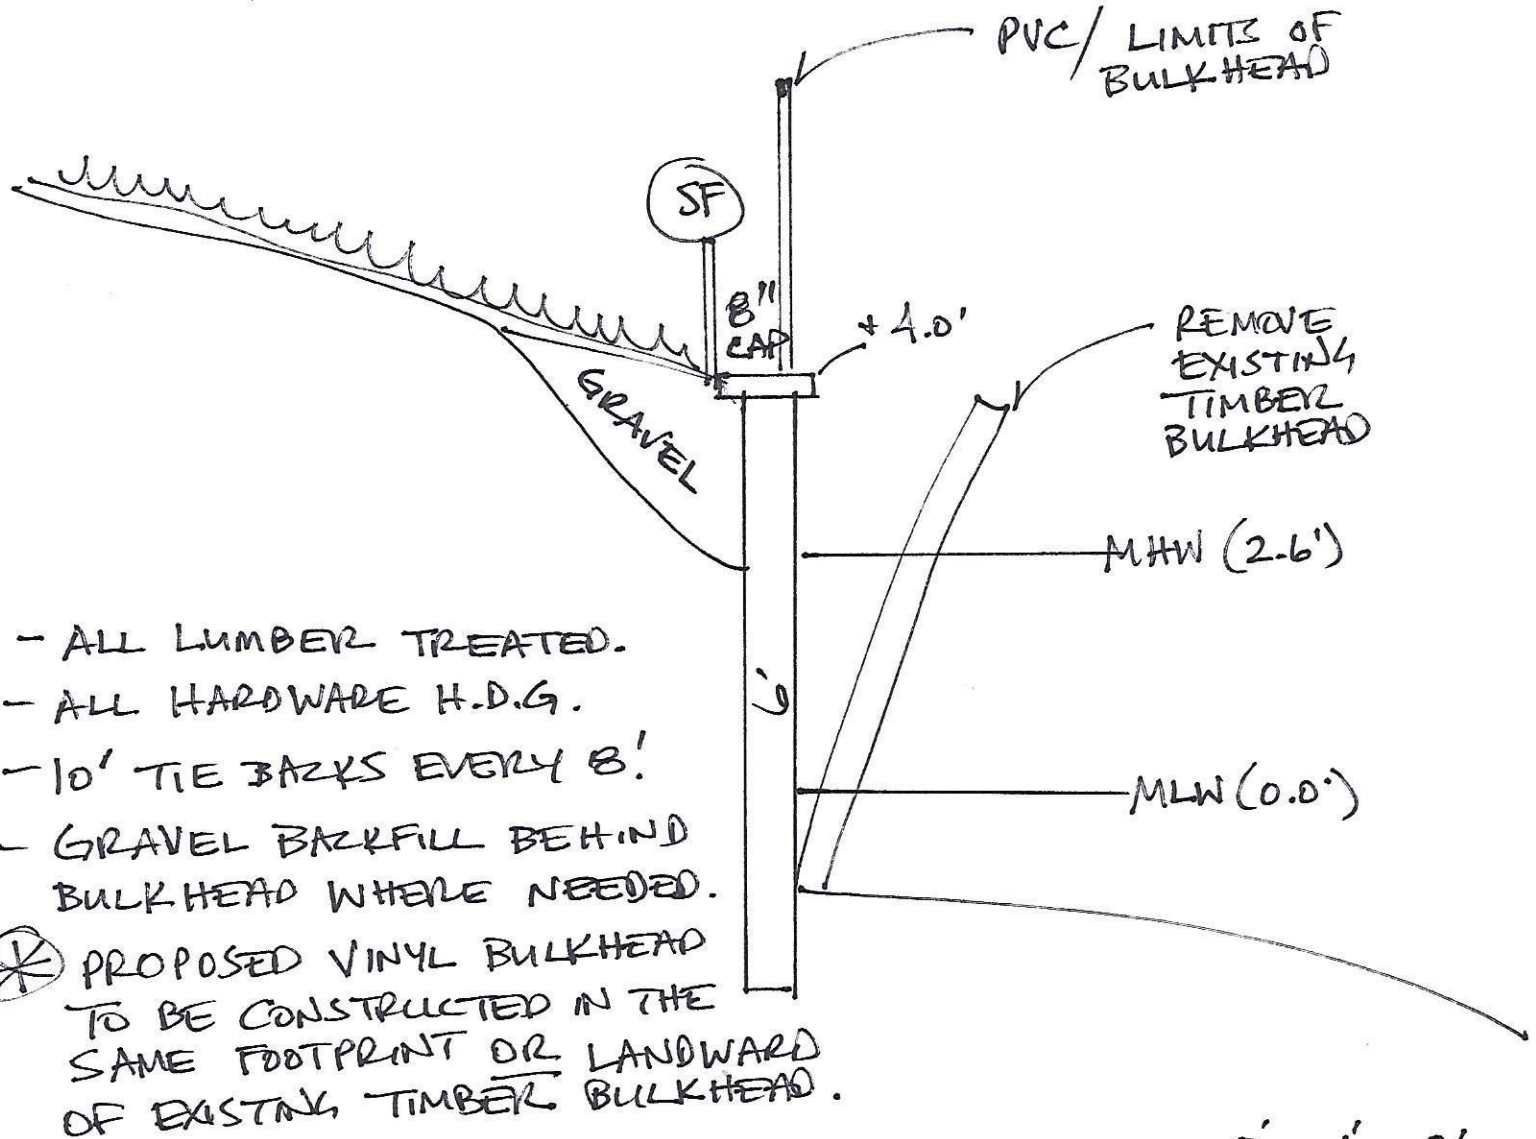 PVC/ LIMITS OF
BULKHEAD
SF
8"
CAP
+ 4.0'
REMOVE
EXISTING
TIMBER
BULKHEAD
GRAVEL
MHW (2.6')
MLW (0.0')
- ALL LUMBER TREATED.
- ALL HARDWARE H.D.G.
- 10' TIE BACKS EVERY 8'.
- GRAVEL BACKFILL BEHIND
BULKHEAD WHERE NEEDED.
* PROPOSED VINYL BULKHEAD
TO BE CONSTRUCTED IN THE
SAME FOOTPRINT OR LANDWARD
OF EXISTING TIMBER BULKHEAD.